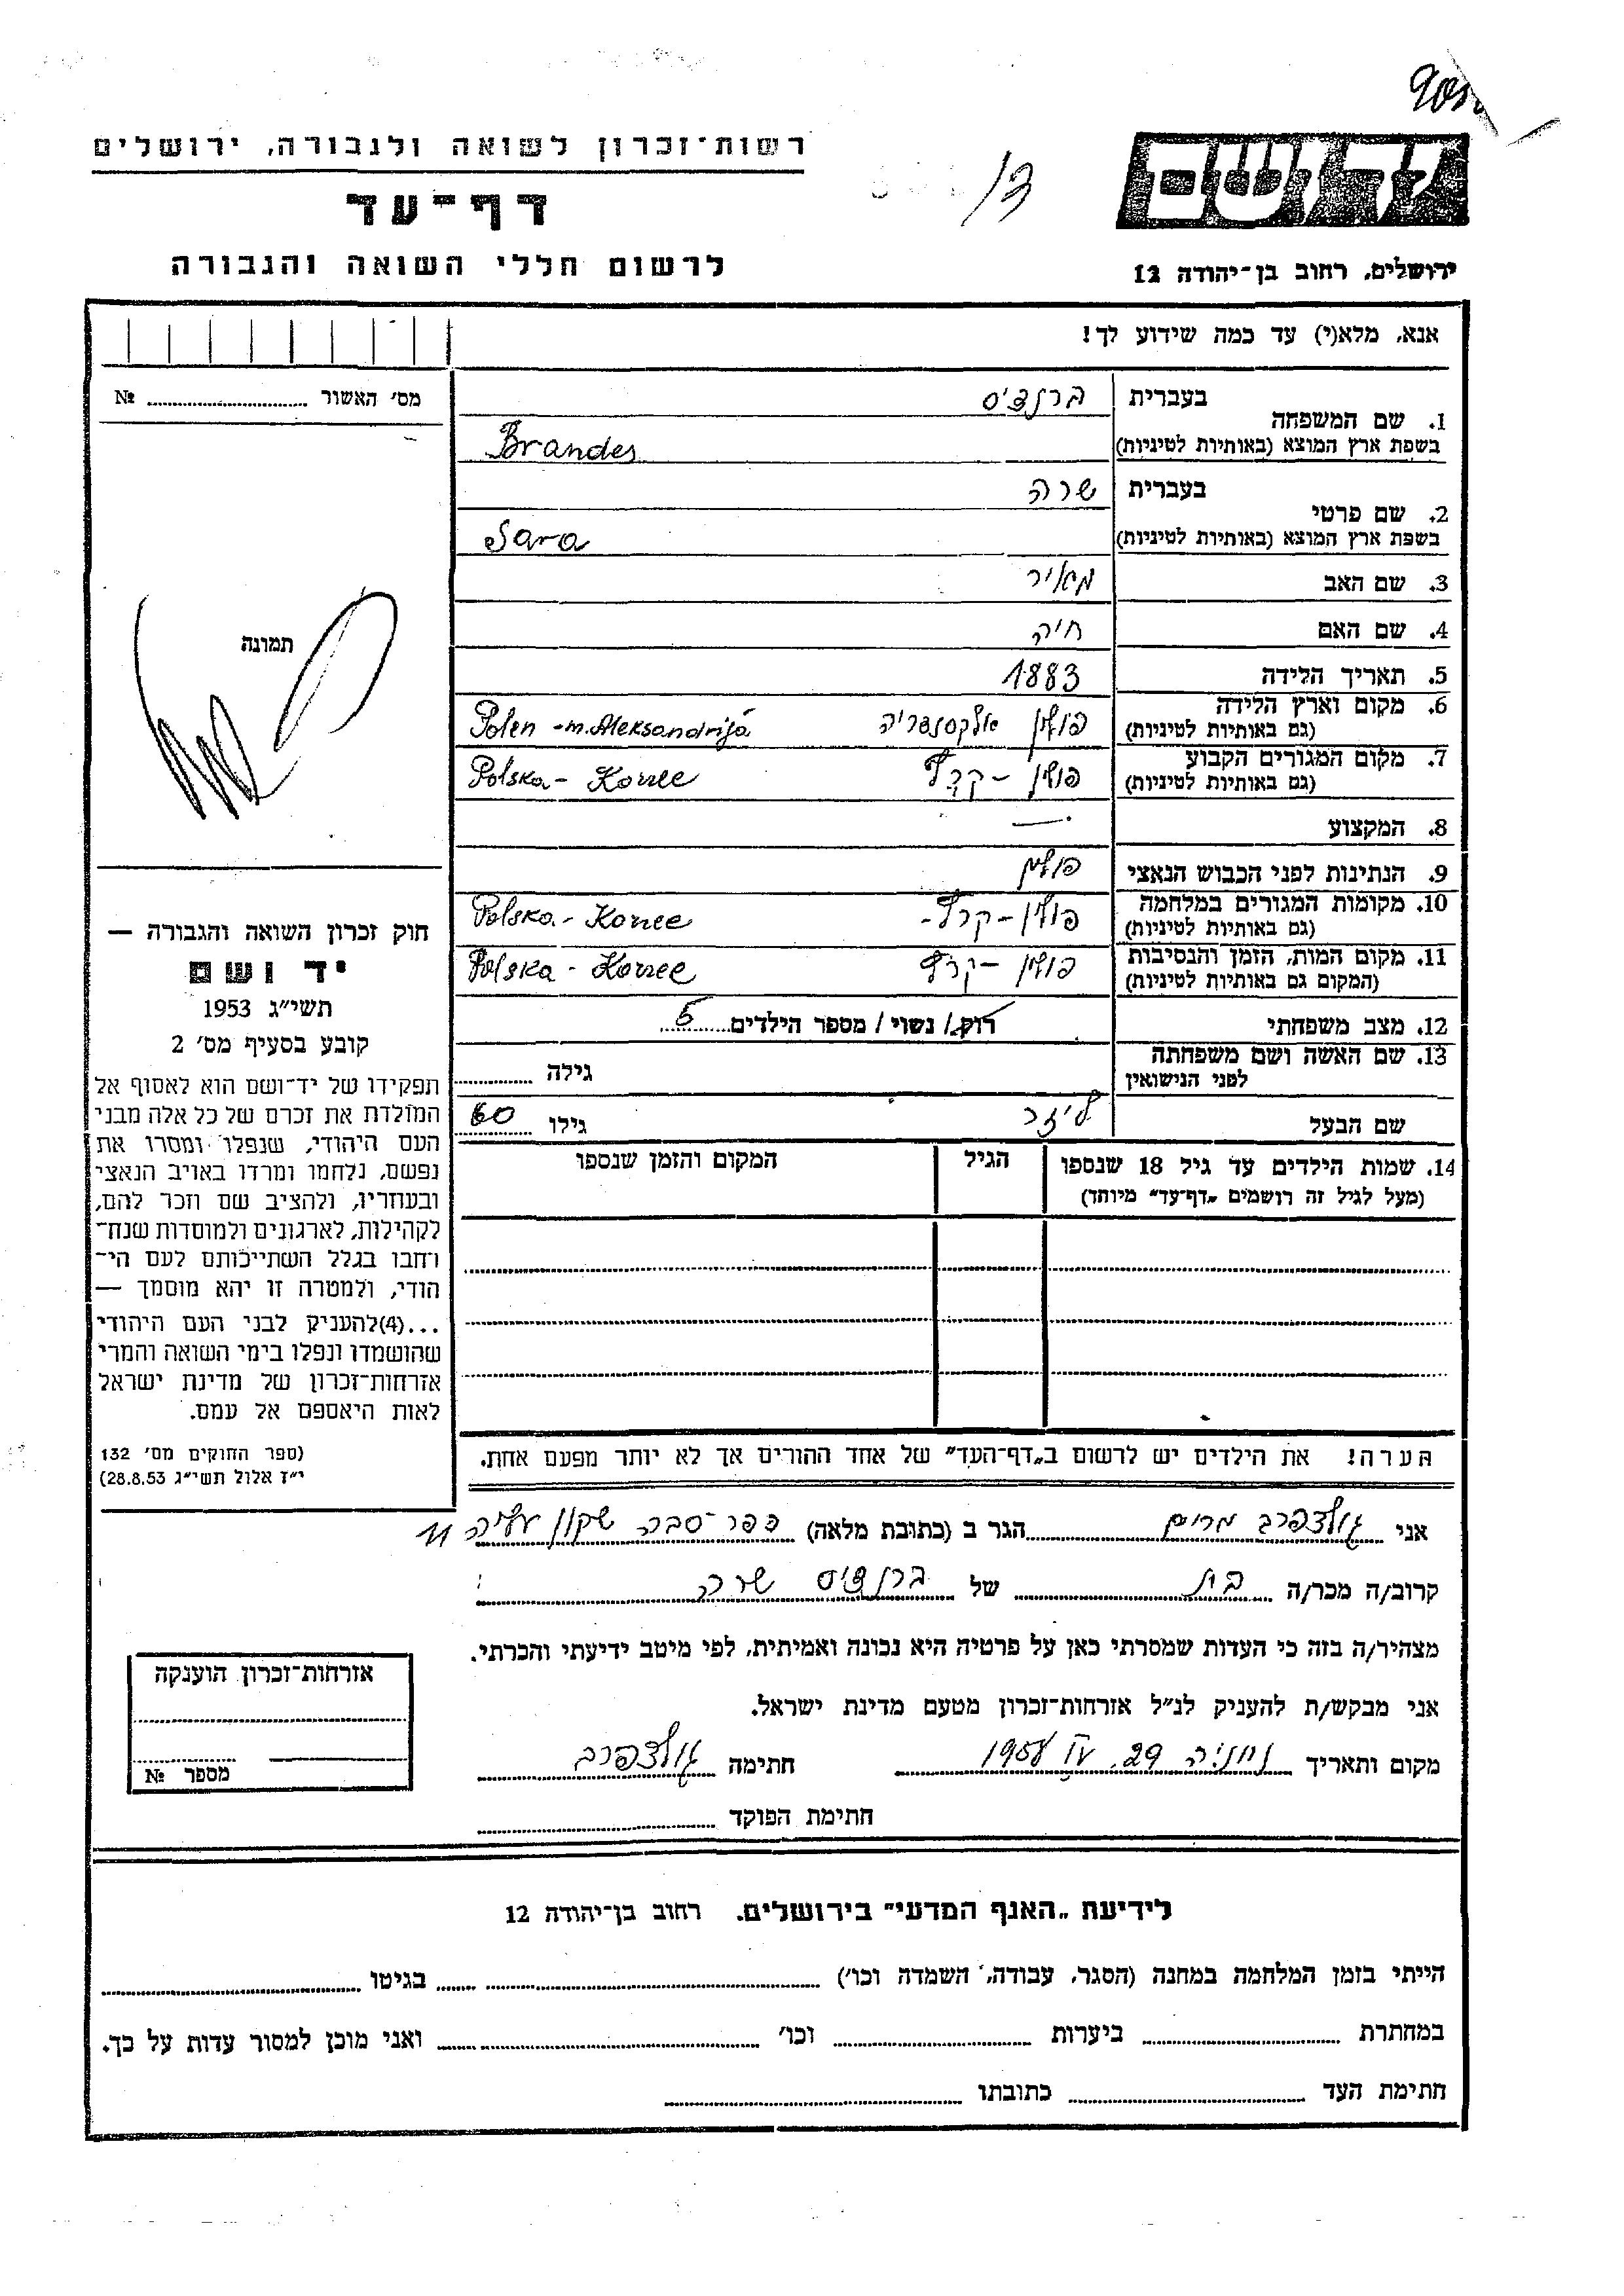 רשות-זכרון לשואה ולגבורה, ירושלים
דף-עד
לרשום חללי השואה והגבורה
ידושם
ירושלים, רחוב בן-יהודה 12
אנא, מלא(י) עד כמה שידוע לך!
מס' האשור № 
1. שם המשפחה בעברית ברנדיס
בשפת ארץ המוצא (באותיות לטיניות) Brandes
2. שם פרטי בעברית שרה
בשפת ארץ המוצא (באותיות לטיניות) Sara
3. שם האב מאיר
4. שם האם חיה
5. תאריך הלידה 1883
6. מקום וארץ הלידה פולין אלקסנדריה Polen - m. Aleksandrija
(גם באותיות לטיניות)
7. מקום המגורים הקבוע פולין - קרץ Polska - Korzec
(גם באותיות לטיניות)
8. המקצוע —
9. הנתינות לפני הכבוש הנאצי פולין
10. מקומות המגורים במלחמה פולין - קרץ - Polska - Korzec
(גם באותיות לטיניות)
11. מקום המות, הזמן והנסיבות פולין - קרץ Polska - Korzec
(המקום גם באותיות לטיניות)
12. מצב משפחתי רוק/ נשוי / מספר הילדים 5
13. שם האשה ושם משפחתה
לפני הנישואין גילה
שם הבעל ליזר גילו 60
14. שמות הילדים עד גיל 18 שנספו הגיל המקום והזמן שנספו
(מעל לגיל זה רושמים „דף-עד" מיוחד)
הערה! את הילדים יש לרשום ב„דף-העד" של אחד ההורים אך לא יותר מפעם אחת.
תמונה
חוק זכרון השואה והגבורה —
יד ושם
תשי"ג 1953
קובע בסעיף מס' 2
תפקידו של יד-ושם הוא לאסוף אל
המולדת את זכרם של כל אלה מבני
העם היהודי, שנפלו ומסרו את
נפשם, נלחמו ומרדו באויב הנאצי
ובעוזריו, ולהציב שם וזכר להם,
לקהילות, לארגונים ולמוסדות שנח-
רחבו בגלל השתייכותם לעם הי-
הודי, ולמטרה זו יהא מוסמך —
...(4)להעניק לבני העם היהודי
שהושמדו ונפלו בימי השואה והמרי
אזרחות-זכרון של מדינת ישראל
לאות היאספם אל עמם.
(ספר החוקים מס' 132
י"ז אלול תשי"ג 28.8.53)
אני גולדפרב מרים הגר ב (כתובת מלאה) כפר-סבה שקון עליה 11
קרוב/ה מכר/ה בת של ברנדיס שרה
מצהיר/ה בזה כי העדות שמסרתי כאן על פרטיה היא נכונה ואמיתית, לפי מיטב ידיעתי והכרתי.
אני מבקש/ת להעניק לנ"ל אזרחות-זכרון מטעם מדינת ישראל.
מקום ותאריך נתניה 29. VI 1957 חתימה גולדפרב
חתימת הפוקד
אזרחות-זכרון הוענקה
מספר №
לידיעת „האגף המדעי" בירושלים, רחוב בן-יהודה 12
הייתי בזמן המלחמה במחנה (הסגר, עבודה, השמדה וכו') בגיטו
במחתרת ביערות וכו' ואני מוכן למסור עדות על כך.
חתימת העד כתובתו